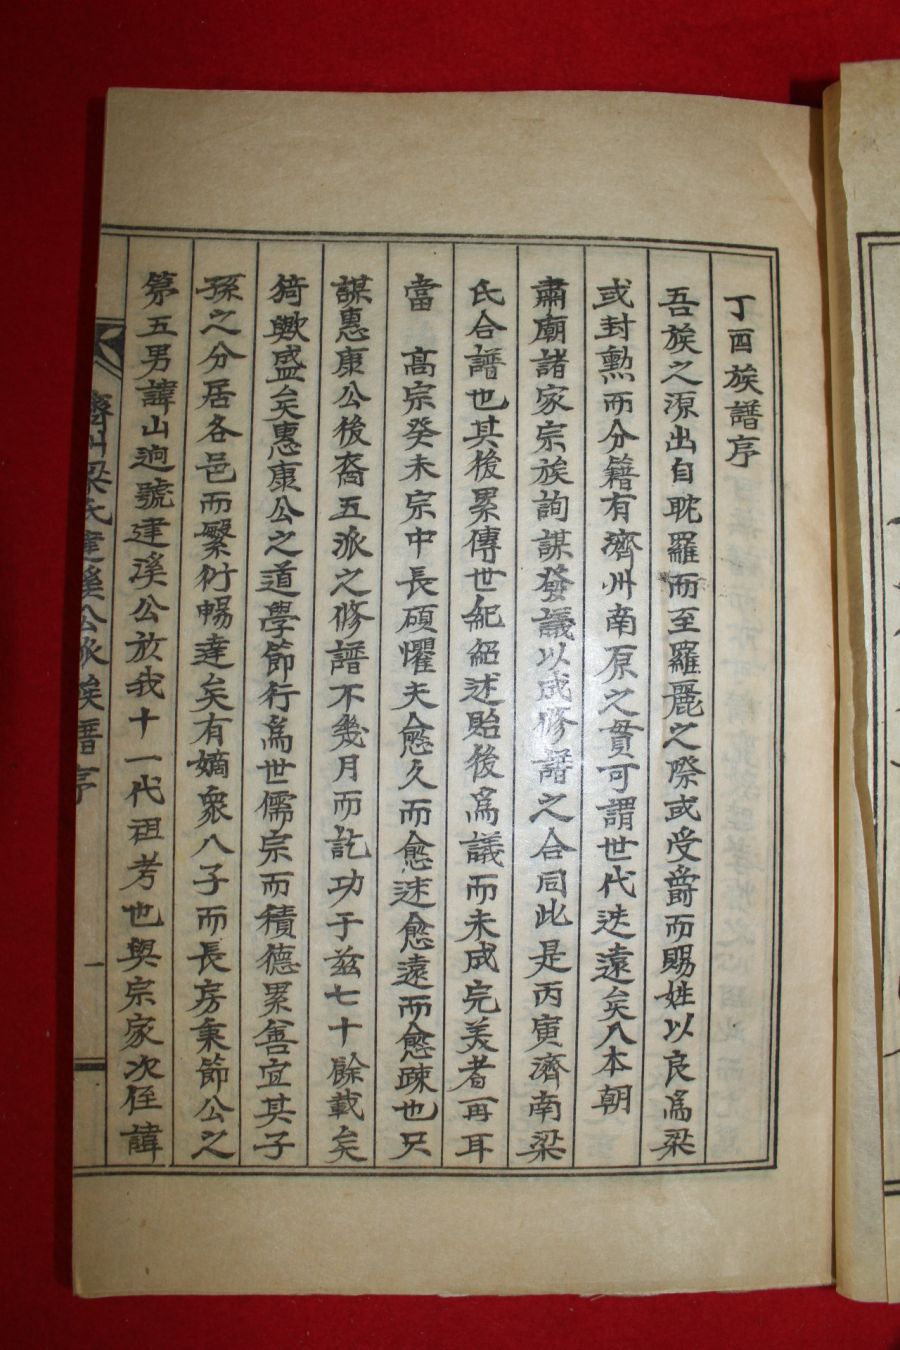 丁酉族譜序
吾族之源出自耽羅而至羅麗之際或受爵而賜姓以良爲梁
或封勲而分籍有濟州南原之貫可謂世代迭遠矣入本朝
肅廟諸家宗族詢謀發議以成修譜之合同此是丙寅濟南梁
氏合譜也其後累傳世紀紹述貽後爲議而未成完美者再耳
當　高宗癸未宗中長碩懼夫愈久而愈迷愈遠而愈疎也只
謀惠康公後裔五派之修譜不幾月而訖功于玆七十餘載矣
猗歟盛矣惠康公之道學節行爲世儒宗而積德累善宜其子
孫之分居各邑而繁衍暢達矣有嫡衆八子而長房秉節公之
第五男諱山逈號建溪公放我十一代祖考也與宗家次侄諱
濟州梁氏建溪公派族譜序
一